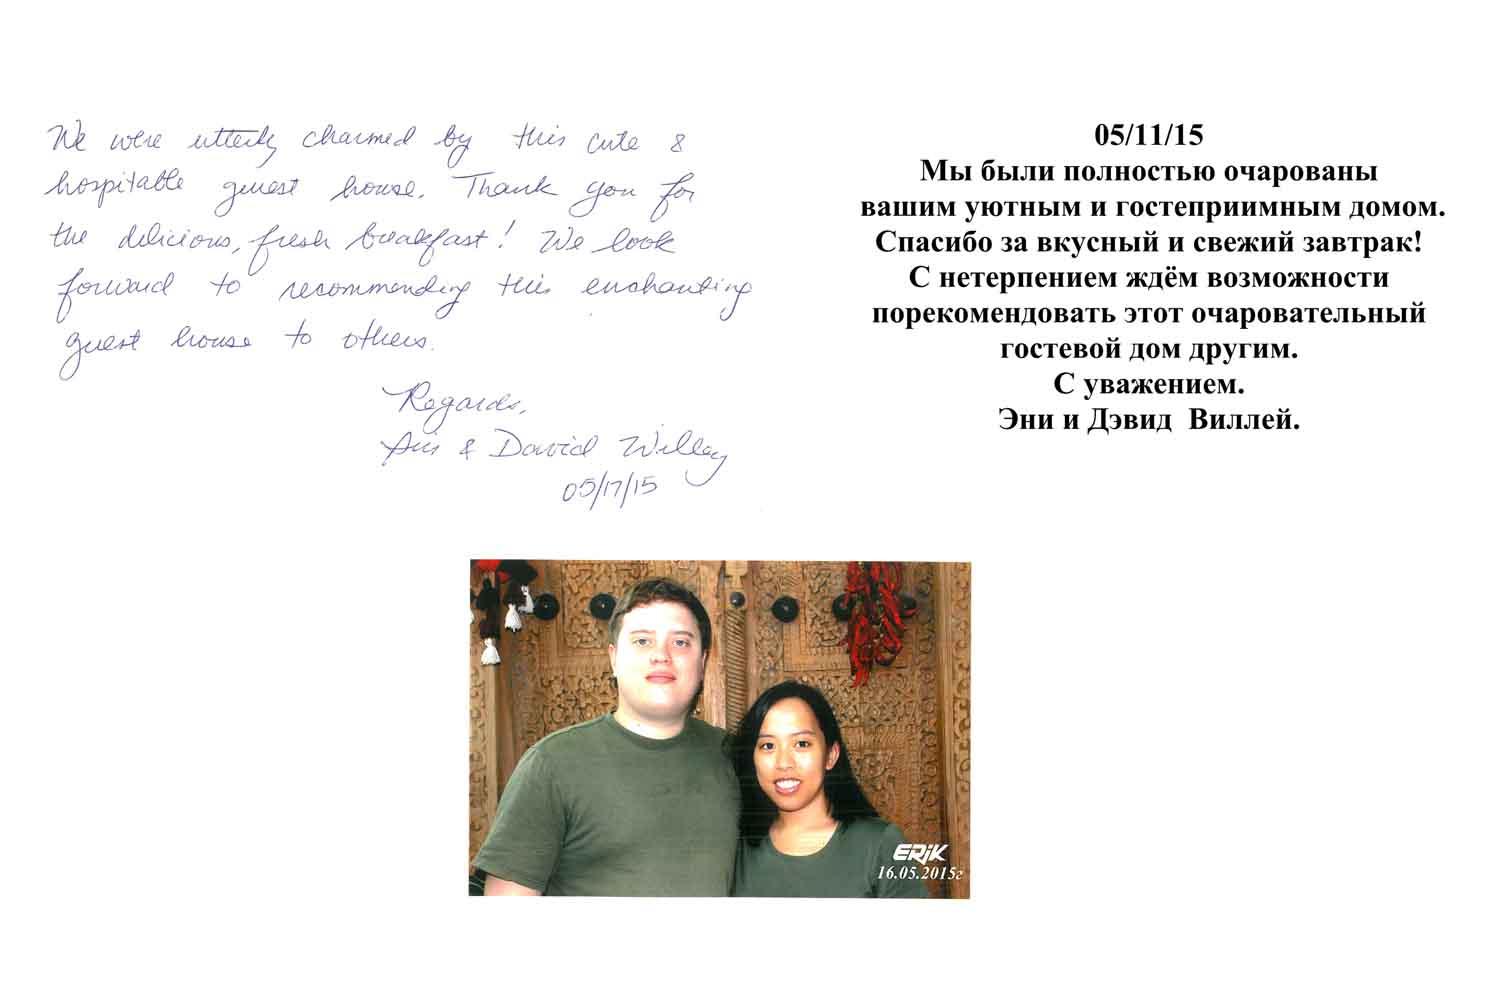 We were utterly charmed by this cute &
hospitable guest house. Thank you for
the delicious, fresh breakfast! We look
forward to recommending this enchanting
guest house to others.
Regards,
& David Willey
05/17/15
05/11/15
Мы были полностью очарованы
вашим уютным и гостеприимным домом.
Спасибо за вкусный и свежий завтрак!
С нетерпением ждём возможности
порекомендовать этот очаровательный
гостевой дом другим.
С уважением.
Эни и Дэвид Виллей.
ERIK
16.05.2015г